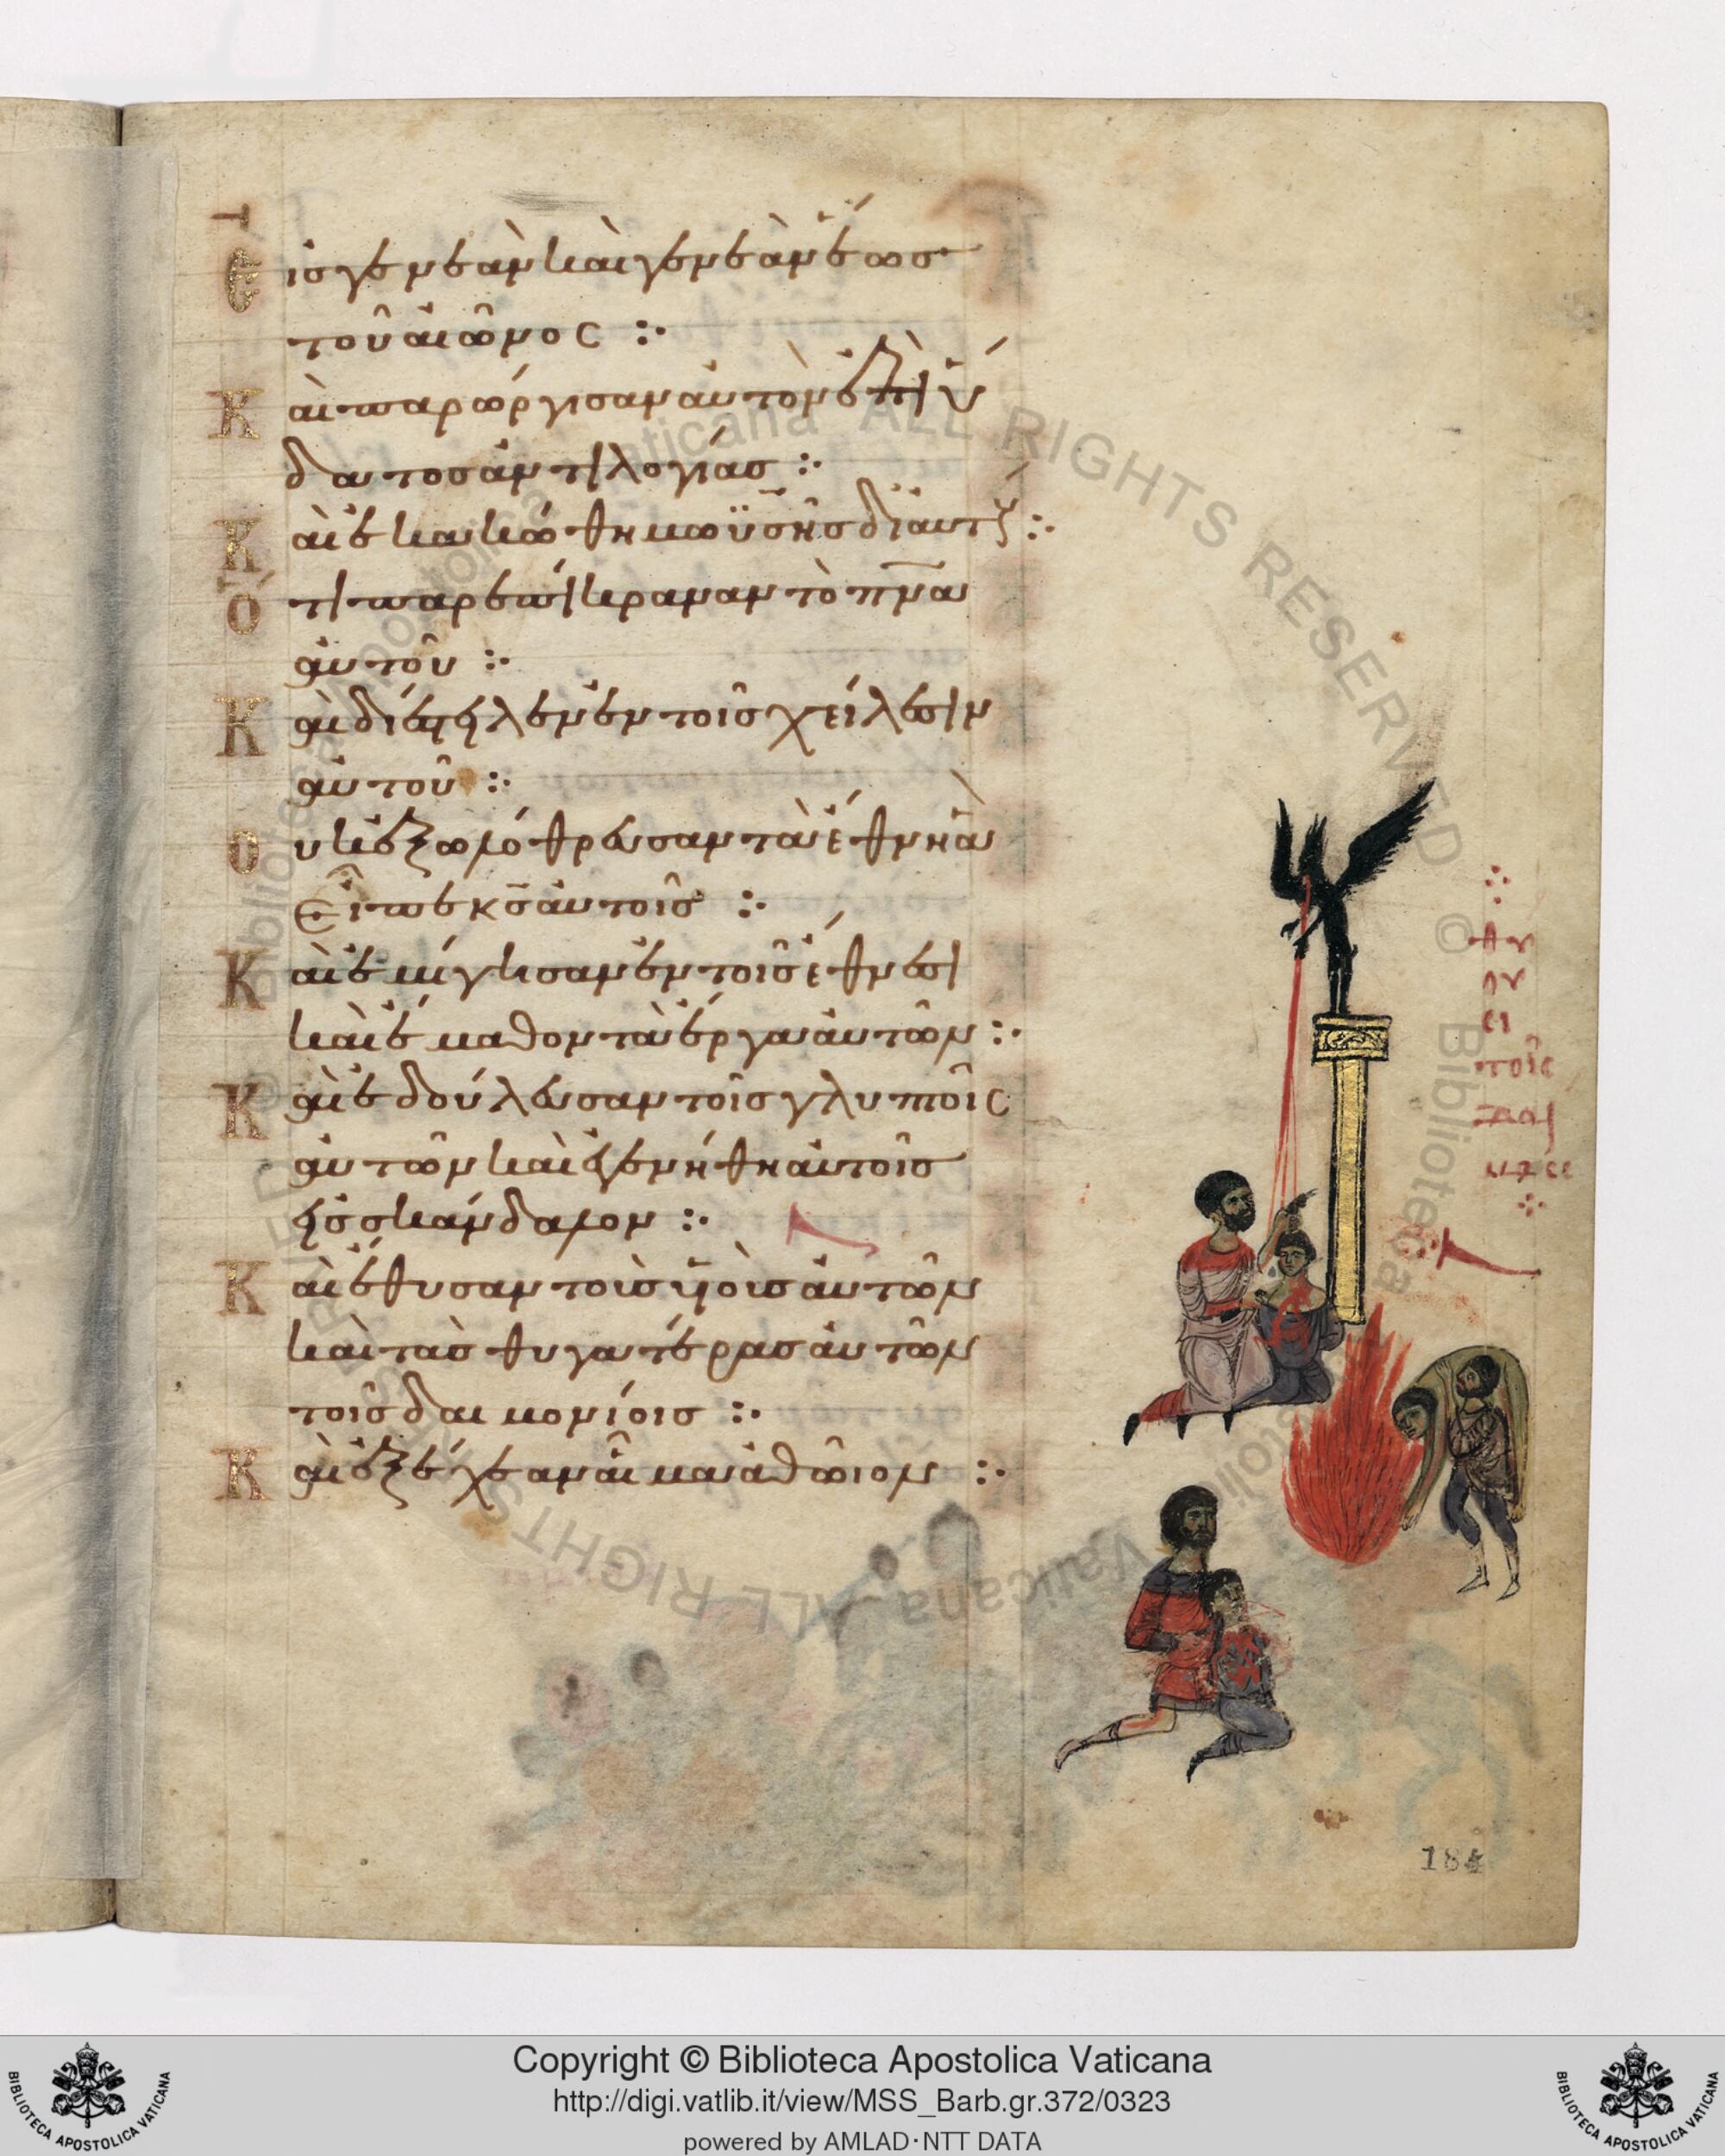 Εἰσ γενεὰν καὶ γενεὰν ἕωσ
τοῦ αἰῶνος :·
Καὶ παρώργισαν αὐτὸν ἐπὶ ὕ
δατοσ ἀντιλογίασ :·
Καὶ ἐκακώθη μωϋσῆσ δι αὐτούς :·
Ὅτι παρεπίκραναν τὸ πνα
αὐτοῦ :·
Καὶ διέστειλεν ἐν τοῖσ χείλεσιν
αὐτοῦ :·
Οὐκ ἐξωλόθρευσαν τὰ ἔθνη ἃ
εἶπε κσ αὐτοῖσ :·
Καὶ ἐμίγησαν ἐν τοῖσ ἔθνεσι
καὶ ἔμαθον τὰ ἔργα αὐτῶν :·
Καὶ ἐδούλευσαν τοῖσ γλυπτοῖς
αὐτῶν καὶ ἐγενήθη αὐτοῖσ
εἰσ σκάνδαλον :·
Καὶ ἔθυσαν τοὺσ υἱοὺσ αὐτῶν
καὶ τὰσ θυγατέρασ αὐτῶν
τοῖσ δαιμονίοισ :·
Καὶ ἐξέχεαν αἷμα ἀθῶιον :·
θυ
ου
σι
τοῖς
184
Biblioteca Apostolica Vaticana ALL RIGHTS RESERVED ©
Copyright © Biblioteca Apostolica Vaticana
http://digi.vatlib.it/view/MSS_Barb.gr.372/0323
powered by AMLAD·NTT DATA
BIBLIOTECA APOSTOLICA VATICANA
BIBLIOTECA APOSTOLICA VATICANA